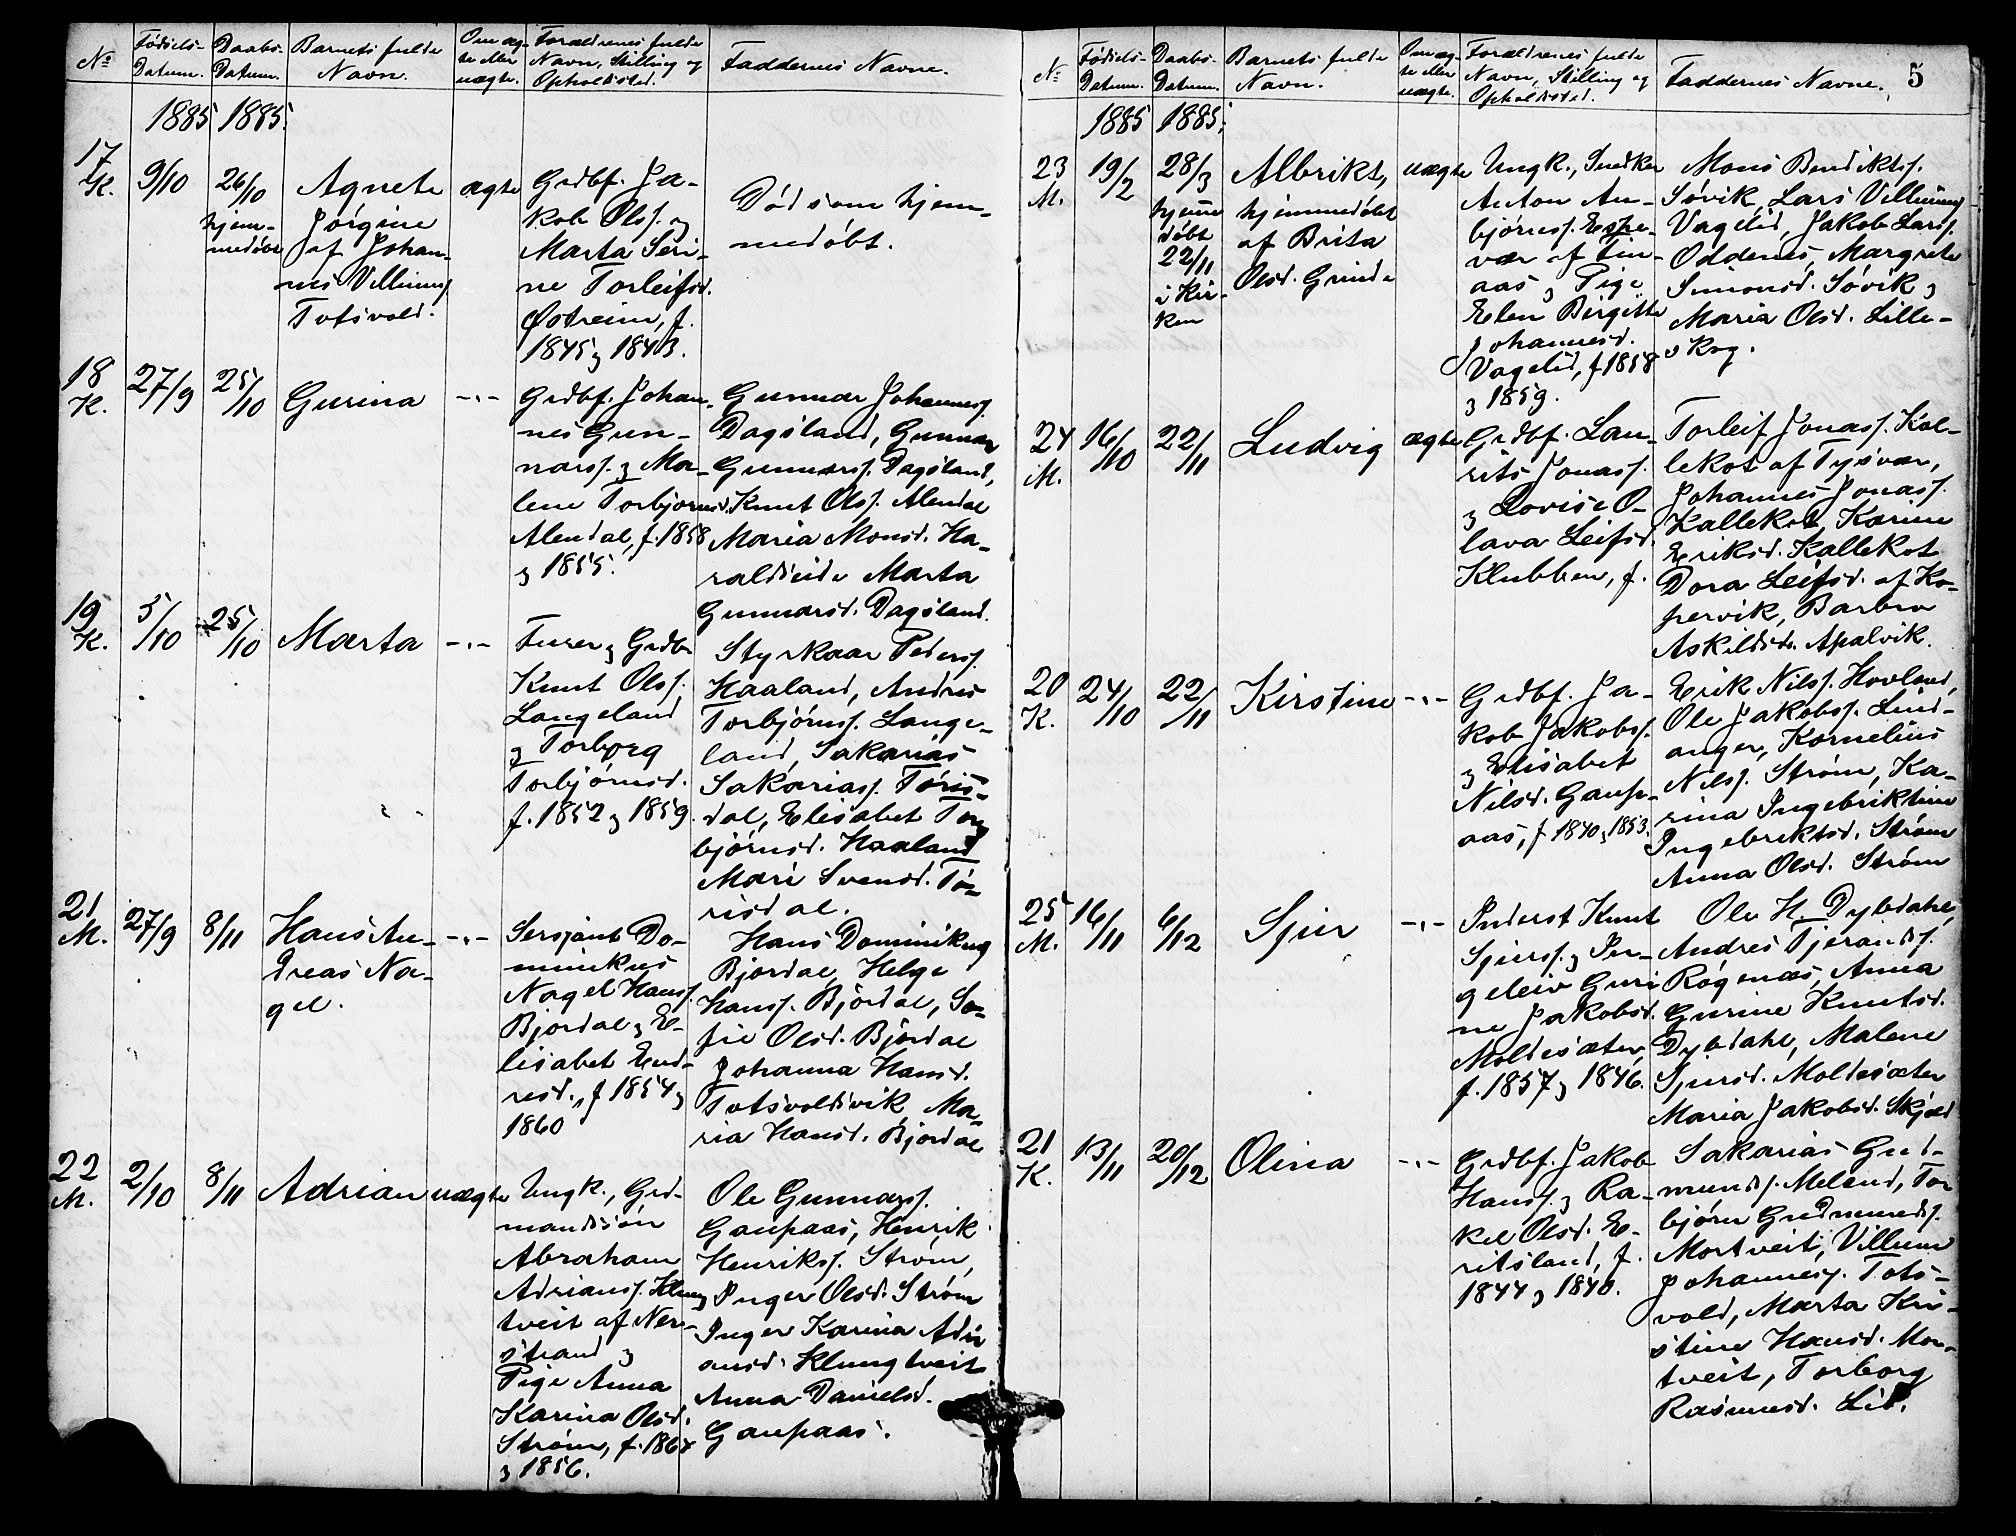 No
Fødsels-
Datum.
Daabs-
Datum.
Barnets fulde
Navn.
Om æg-
te eller
uægte.
Forældrenes fulde
Navn, Stilling og
Opholdsted.
Faddernes Navne.
1885 1885.
17
K.
9/10
26/10
hjem-
medøbt
Agnete
Jørgine
af Johan-
nes Villiums
Totsvold.
ægte
Grdbf. Ja-
kob Olss. og
Marta Seri-
ne Torleifsd.
Østreim, f.
1845 og 1843.
Død som hjem-
medøbt.
18
K.
27/9
25/10
Gurina
-"-
Grdbf. Johan-
nes Gun-
narss. og Ma-
lene Torbjørnsd.
Alendal, f. 1858
og 1855.
Gunnar Johanness.
Dagsland, Gunnar
Gunnarss. Dagsland,
Knut Olss. Alendal
Maria Monsd. Ha-
raldseide Marta
Gunnarsd. Dagsland.
19
K.
5/10
25/10
Marta
-"-
Furer og Grdbr
Knut Olss.
Langeland
og Torborg
Torbjørnsd.
f. 1852 og 1859.
Styrkaar Peders.
Haaland, Andreas
Torbjørnss. Lange-
land, Sakarias
Sakariass. Tøris-
dal, Elisabet Tor-
bjørnsd. Haaland
Mari Svensd. Tø-
risdal.
21
M.
27/9
8/11
Hans An-
dreas Na-
gel.
-"-
Sersjant Do-
minikus
Nagel Hanss.
Bjordal og E-
lisabet End-
resd., f 1854 og
1860
Hans Dominikus
Bjordal, Helge
Hanss. Bjordal, So-
fie Olsd. Bjordal
Johanna Hansd.
Totsvoldsvik, Ma-
ria Hansd. Bjordal
22
M.
2/10
8/11
Adrian
uægte
Ungk., Grd-
mandssøn
Abraham
Adrianss. Klung
tveit af Ner-
strand og
Pige Anna
Karina Olsd.
Strøm, f. 1864
og 1856.
Ole Gunnarss.
Gaupaas, Henrik
Henrikss. Strøm,
Inger Olsd. Strøm
Inger Karina Adri
ansd. Klungtveit
Anna Danielsd.
Gaupaas.
No
Fødsels-
Datum.
Daabs-
Datum.
Barnets fulde
Navn.
Om æg-
te eller
uægte.
Forældrenes fulde
Navn, Stilling og
Opholdsted.
Faddernes Navne.
5
1885 1885.
23
M.
19/2
28/3
hjemme
døbt
22/11
i Kir-
ken
Albrikt,
hjemmedøbt
af Brita
Olsd. Grinde
uægte
Ungk., Snedker
Anton An-
bjørnss. Espe-
vær af Fin-
aas og Pige
Elen Birgitte
Johannesd.
Vagelid, f 1858
og 1859.
Mons Bendiktss.
Søvik, Lars Villiums
Vagelid, Jakob Larss.
Oddenes, Margrete
Simonsd. Søvik og
Maria Olsd. Lille-
skog.
24
M.
16/10
22/11
Ludvig
ægte
Grdbf. Lau-
rits Jonass.
og Lovise O-
lava Leifsd.
Klubben, f.
Torleif Jonass. Kal-
lekot af Tysvær,
Johannes Jonass.
Kallekot, Karine
Eriksd. Kallekot
Dora Leifsd. af Ko-
pervik, Barbro
Askildsd. Apalvik.
20
K.
24/10
22/11
Kirstine
-"-
Grdbf. Ja-
kob Jakobss.
og Elisabet
Nilsd. Gaup-
aas, f 1840 og 1853.
Erik Nilss. Hovland,
Ole Jakobss. Lind-
anger, Kornelius
Nilss. Strøm, Ka-
rina Ingebriktine
Ingebriktsd. Strøm
Anna Olsd. Strøm
25
M.
16/11
6/12
Sjur
-"-
Inderst Knut
Sjurss. og Per-
geleiv Guri
ne Jakobsd.
Moldesæter,
f. 1857 og 1846.
Ole H. Dybdahl,
Andres Tjerandss.
Røgenæs, Anna
Gurine Knutsd.
Dybdahl, Malene
Sjursd. Moldesæter
Maria Jakobsd. Skjold
21
K.
13/11
20/12
Olina
-"-
Grdbf. Jakob
Hanss. og Ra-
kel Olsd. E-
ritsland, f.
1844 og 1840.
Sakarias Gud-
munds. Meland, Tor
bjørn Gudmunds.
Mortveit, Villum
Johanness. Tots-
vold, Marta Kri-
stine Hansd. Mor-
tveit, Torborg
Rasmusd. Lid.